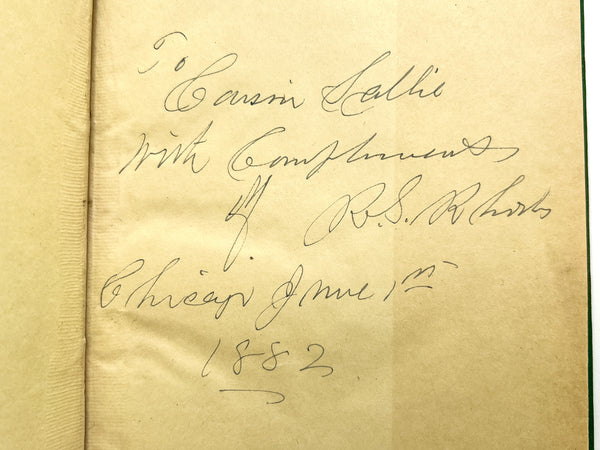 To
Cousin Sallie
With Compliments
of R.S. Rhodes
Chicago June 1st
1882